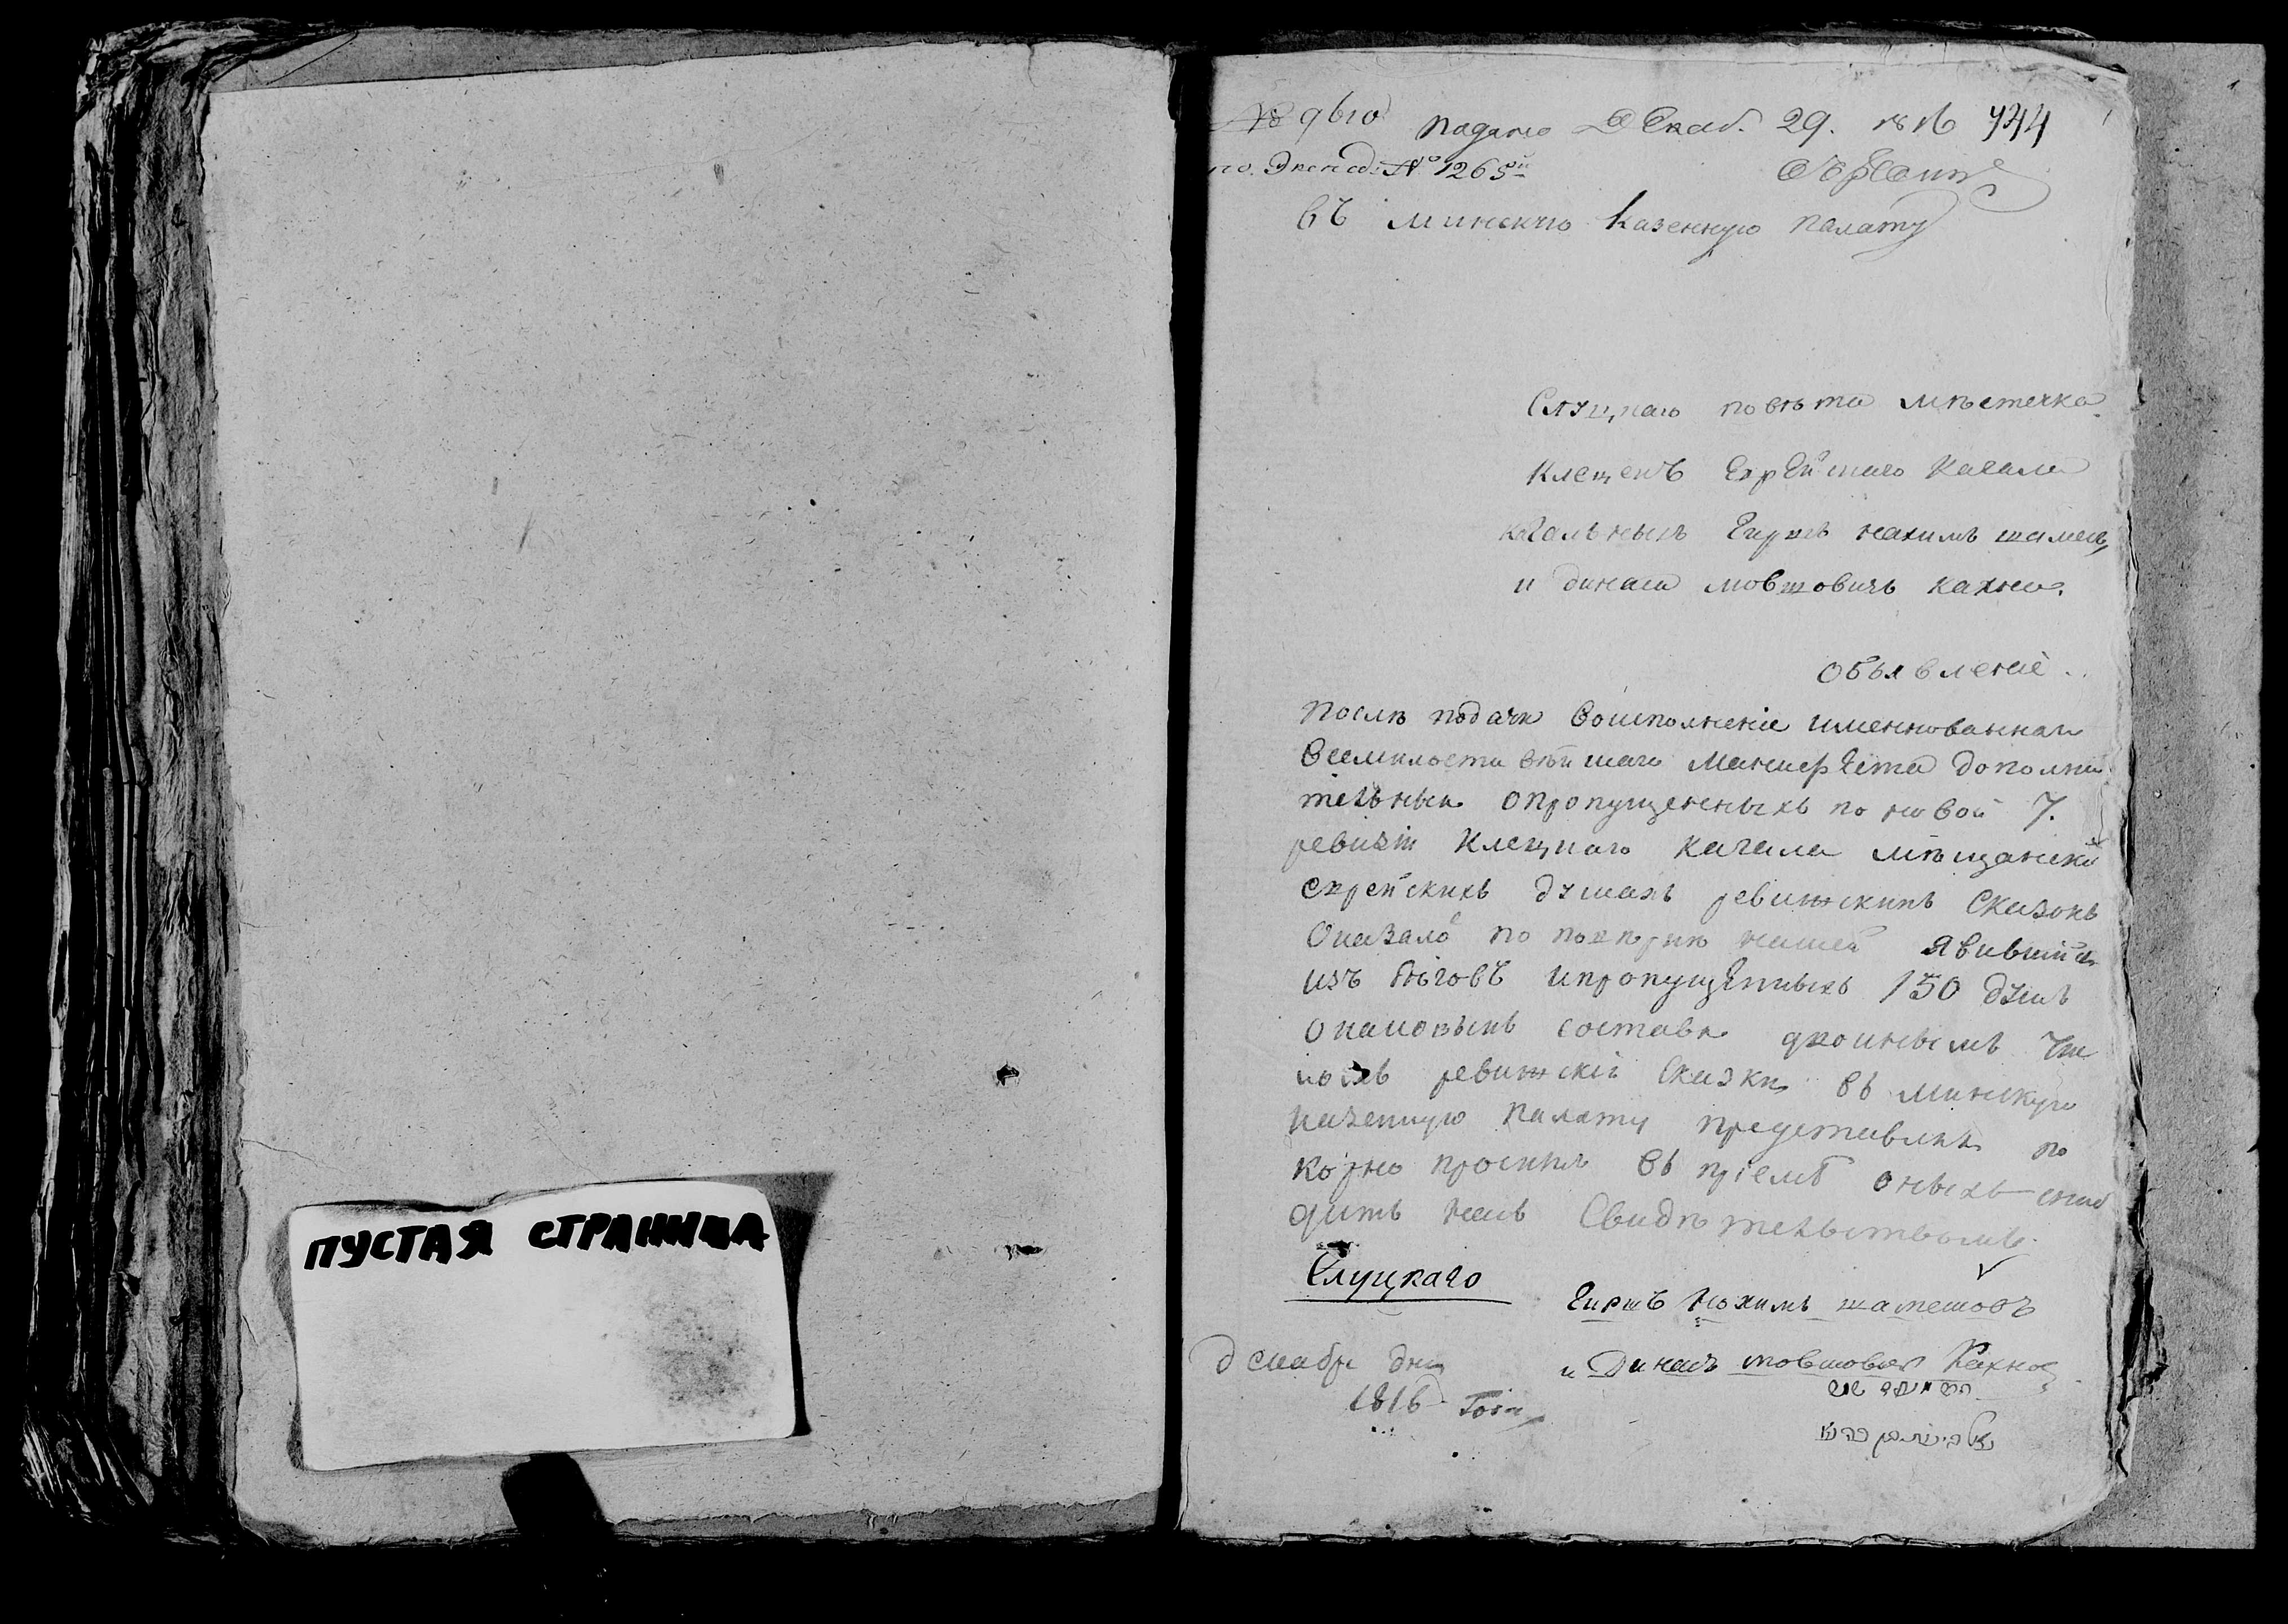 ПУСТАЯ СТРАНИЦА
№ 9610 Подано Декаб. 29. 1816 744
по. Экспед: № 1265й
въ минскую казенную палату
Слуцкаго повѣта мѣстечка
Клецкъ Еврейскаго Кагала
кагальныхъ Гиршъ нахимъ
и динаса мовшовичъ кахно.
Объявленіе.
послѣ подачи воисполненіе
Всемилостивѣйшаго Манифеста дополни
тельныхъ опропущенныхъ по новой 7.
ревизіи Клецкаго Кагала мѣщански
еврейскихъ душахъ ревижскихъ Сказокъ
Оказало по нашей явившійся
изъ бѣговъ ипропущенныхъ 150 душъ
о каковыхъ составя двоинымъ Чи
ломъ ревижскіе Сказки въ минскую
казенную палату представляя по
корно просимъ въ пріемѣ оныхъ снаб
дить насъ Свидѣтельствомъ.
Слуцкаго
Гиршъ Нохимъ шамешовъ
декабр дня и Динасъ мовшович Кахно
1816 Года